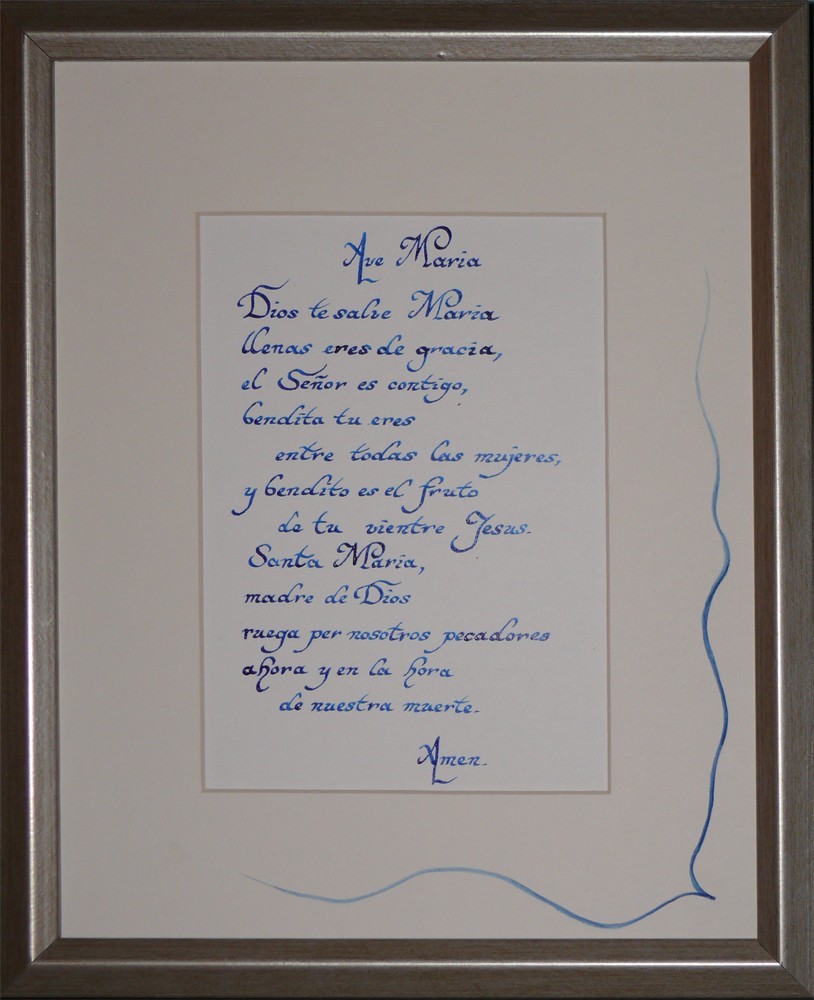 Ave Maria
Dios te salve Maria
llenas eres de gracia,
el Señor es contigo,
bendita tu eres
entre todas las mujeres,
y bendito es el fruto
de tu vientre Jesus.
Santa Maria,
madre de Dios
ruega per nosotros pecadores
ahora y en la hora
de nuestra muerte.
Amen.